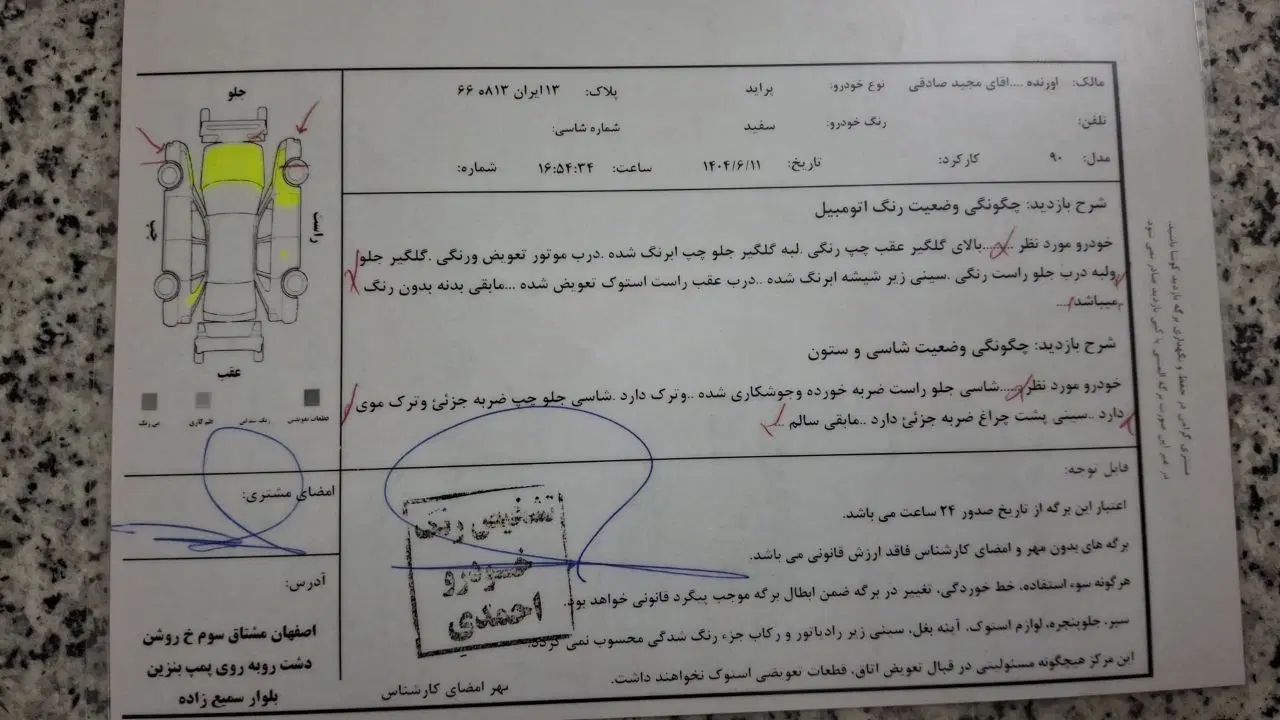 مالک: اورنده ....اقای مجید صادقی نوع خودرو: پراید پلاک: ۱۳ایران ۸۱۳ه ۶۶
تلفن: رنگ خودرو: سفید شماره شاسی:
مدل: ۹۰ کارکرد: تاریخ: ۱۴۰۴/۶/۱۱ ساعت: ۱۶:۵۴:۳۴ شماره:
شرح بازدید: چگونگی وضعیت رنگ اتومبیل
خودرو مورد نظر ......بالای گلگیر عقب چپ رنگی .لبه گلگیر جلو چپ ابرنگ شده .درب موتور تعویض ورنگی .گلگیر جلو
ولبه درب جلو راست رنگی .سینی زیر شیشه ابرنگ شده ..درب عقب راست استوک تعویض شده ...مابقی بدنه بدون رنگ
میباشد....
شرح بازدید: چگونگی وضعیت شاسی و ستون
خودرو مورد نظر.....شاسی جلو راست ضربه خورده وجوشکاری شده ..وترک دارد .شاسی جلو چپ ضربه جزئئ وترک موی
دارد ..سینی پشت چراغ ضربه جزئئ دارد ..مابقی سالم ...
قابل توجه:
اعتبار این برگه از تاریخ صدور ۲۴ ساعت می باشد.
برگه های بدون مهر و امضای کارشناس فاقد ارزش قانونی می باشد.
هرگونه سوء استفاده، خط خوردگی، تغییر در برگه ضمن ابطال برگه موجب پیگرد قانونی خواهد بود.
سپر، جلوپنجره، لوازم استوک، آینه بغل، سینی زیر رادیاتور و رکاب جزء رنگ شدگی محسوب نمی گردد.
این مرکز هیچگونه مسئولیتی در قبال تعویض اتاق، قطعات تعویضی استوک نخواهند داشت.
مهر امضای کارشناس
تشخیص رنگ
خودرو
احمدی
جلو
چپ
راست
عقب
قطعات تعویضی
رنگ شدگی
بی رنگ
امضای مشتری:
آدرس:
اصفهان مشتاق سوم خ روشن
دشت روبه روی پمپ بنزین
بلوار سمیع زاده
مشتری گرامی در حفظ و نگهداری برگه بازدید کوشا باشید.
در غیر این صورت برگه المثنی یا کپی بازدید صادر نمی شود.